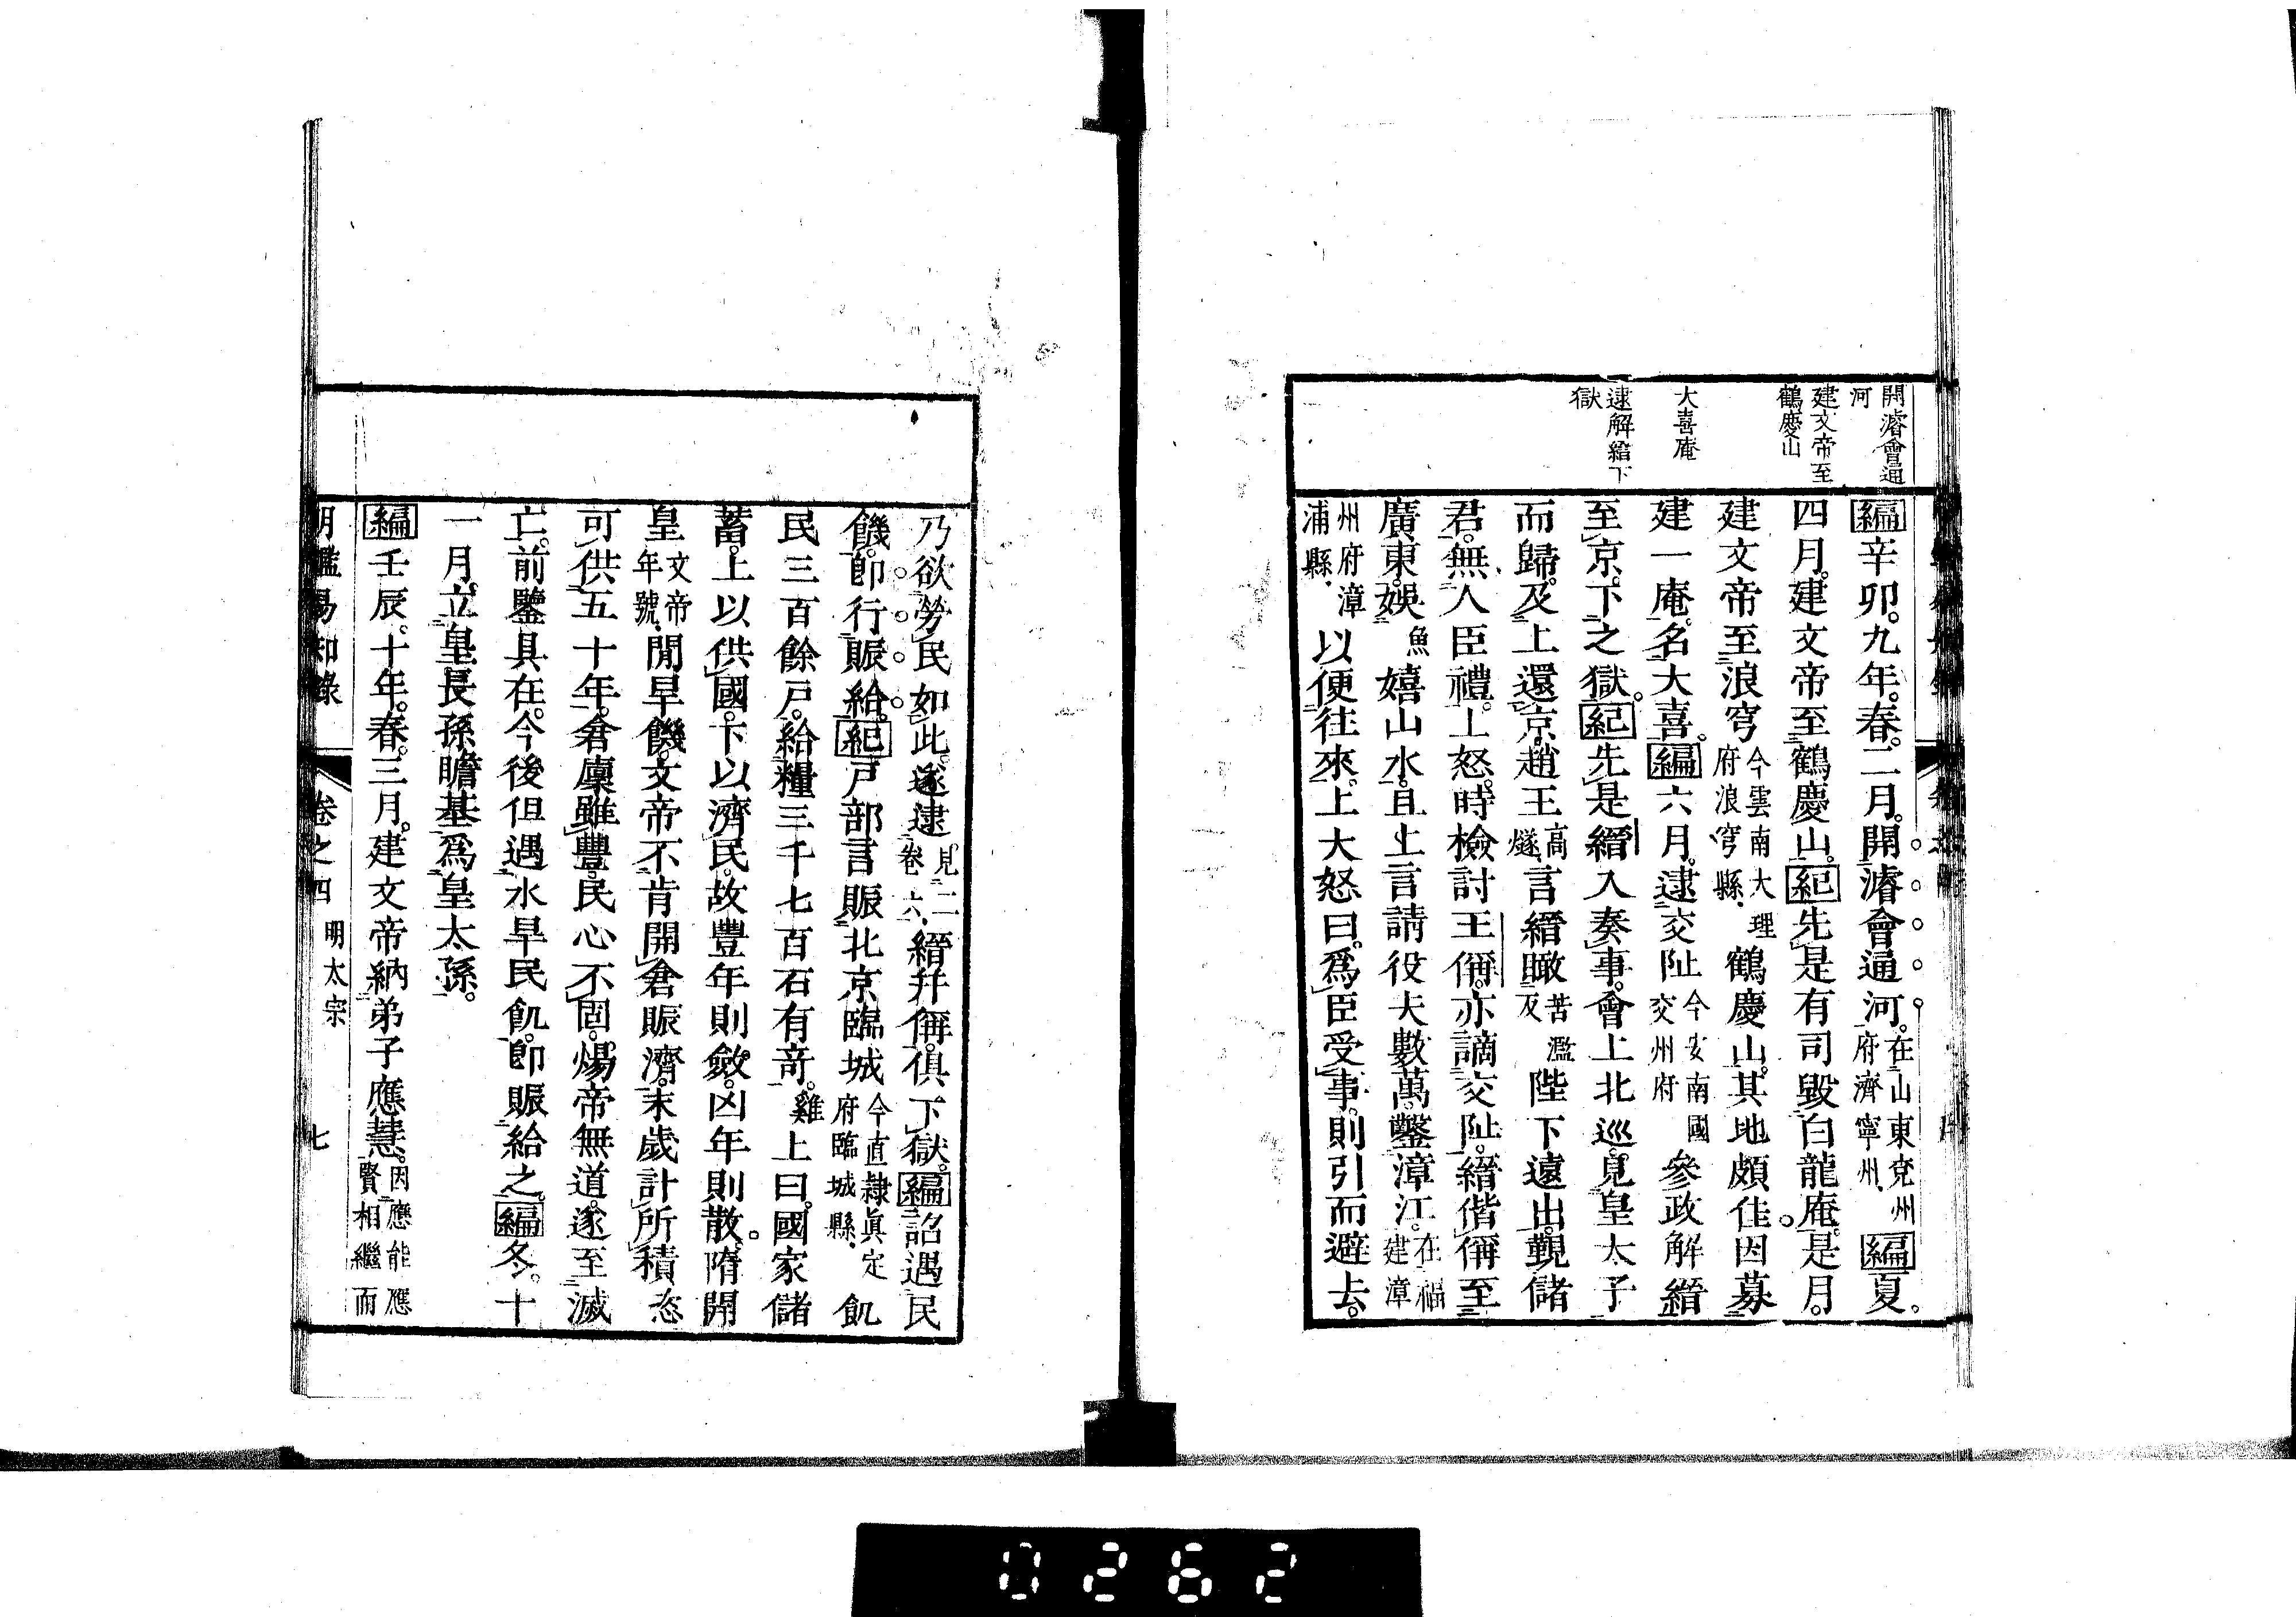 開濬會通
河
建文帝至
鶴慶山
大喜庵
逮解縉下
獄
編辛卯。九年。春。二月。開濬會通河。在山東兗州府濟寧州。編夏。
四月。建文帝至鶴慶山。紀先是有司毀白龍庵。是月。
建文帝至浪穹今雲南大理府浪穹縣。鶴慶山。其地頗佳。因募
建一庵。名大喜。編六月。逮交阯今安南國交州府參政解縉
至京。下之獄。紀先是縉入奏事。會上北巡。見皇太子
而歸。及上還京。趙王高燧。言縉瞰苦濫反陛下遠出。覲儲
君。無人臣禮。上怒。時檢討王偁。亦謫交阯。縉偕偁至
廣東。娛魚嬉山水。且上言請役夫數萬。鑿漳江。在福建漳
州府漳浦縣。以便往來。上大怒曰。爲臣受事。則引而避去。
乃欲勞民如此。遂逮見二卷六。縉幷偁。俱下獄。編詔遇民
饑。卽行賑給。紀戶部言賑北京臨城今直隸眞定府臨城縣。飢
民三百餘戶。給糧三千七百石有竒。雞上曰。國家儲
蓄。上以供國。下以濟民。故豐年則斂。凶年則散。隋開
皇文帝年號。閒旱饑。文帝不肯開倉賑濟。末歲計所積恣
可供五十年。倉廩雖豐。民心不固。煬帝無道。遂至滅
亡。前鑒具在。今後但遇水旱民飢。卽賑給之。編冬。十
一月。立皇長孫瞻基爲皇太孫。
編壬辰。十年。春。三月。建文帝納弟子應慧。因應能應賢相繼而
明鑑易知錄 卷之四 明太宗 七
0262